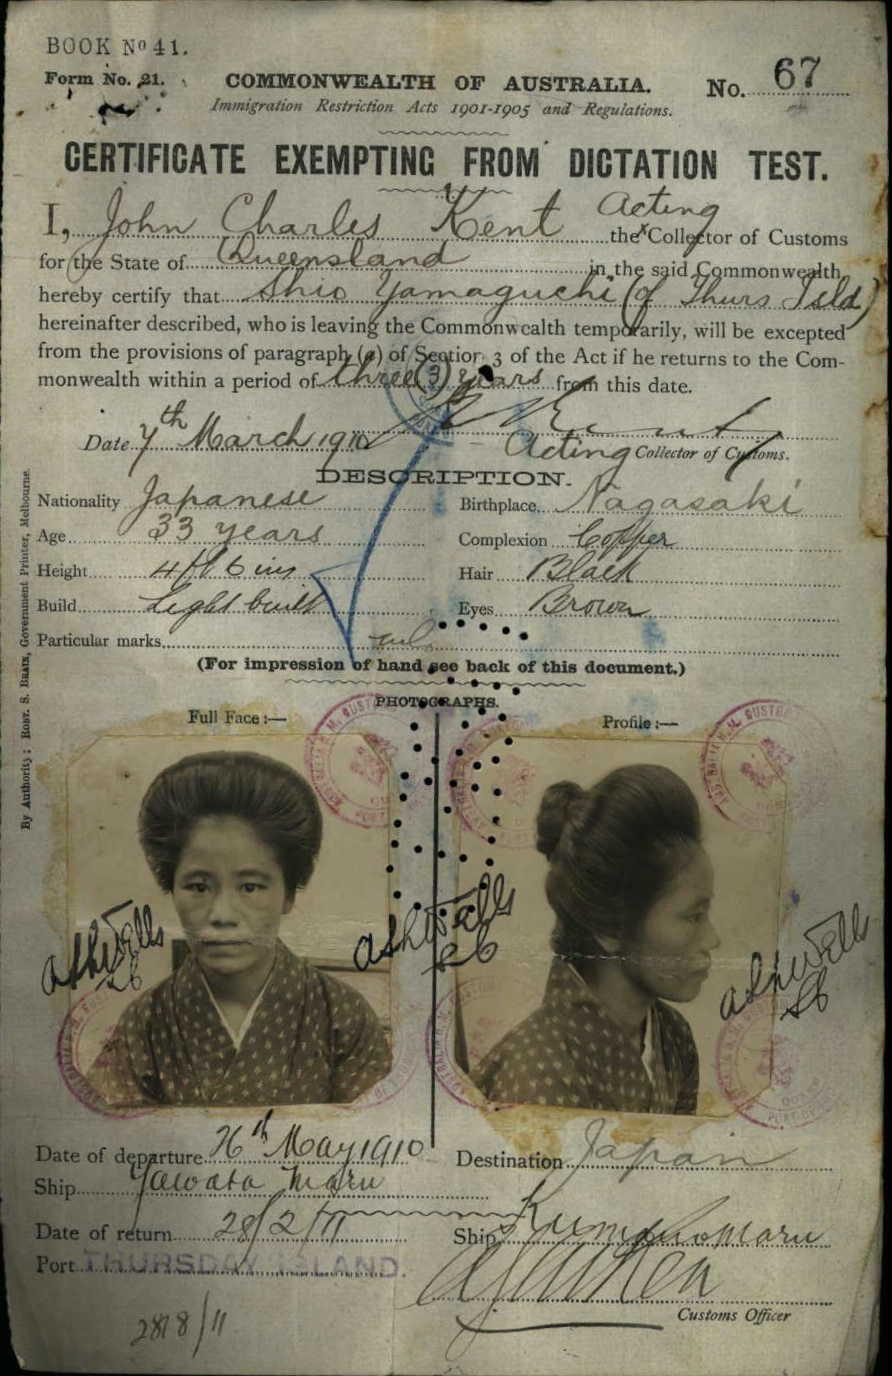 BOOK No 41.
Form No. 21.
COMMONWEALTH OF AUSTRALIA.
No. 67
Immigration Restriction Acts 1901-1905 and Regulations.
CERTIFICATE EXEMPTING FROM DICTATION TEST.
Acting
I, John Charles Kent the Collector of Customs
for the State of Queensland in the said Commonwealth
hereby certify that Shio Yamaguchi (of Thurs Isld)
hereinafter described, who is leaving the Commonwealth temporarily, will be excepted
from the provisions of paragraph (a) of Section 3 of the Act if he returns to the Com-
monwealth within a period of three (3) years from this date.
Date 7th March 1910
Acting Collector of Customs.
DESCRIPTION.
Nationality Japanese Birthplace Nagasaki
Age 33 years Complexion Copper
Height 4 ft 6 ins Hair Black
Build Light built Eyes Brown
Particular marks nil
(For impression of hand see back of this document.)
PHOTOGRAPHS.
Full Face :— Profile :—
Date of departure 26th May 1910 Destination Japan
Ship Yawata Maru
Date of return 28/2/11 Ship Kumano Maru
Port THURSDAY ISLAND.
Customs Officer
By Authority : ROBT. S. BRAIN, Government Printer, Melbourne.